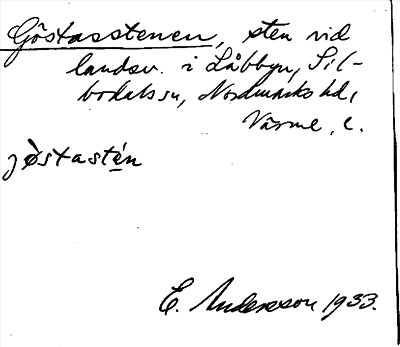 Göstasstenen, sten vid
landsv. i Låbbyn, Sil-
bodals sn, Nordmarks hd,
Värml. l.
jøstastén
E. Andersson 1933.